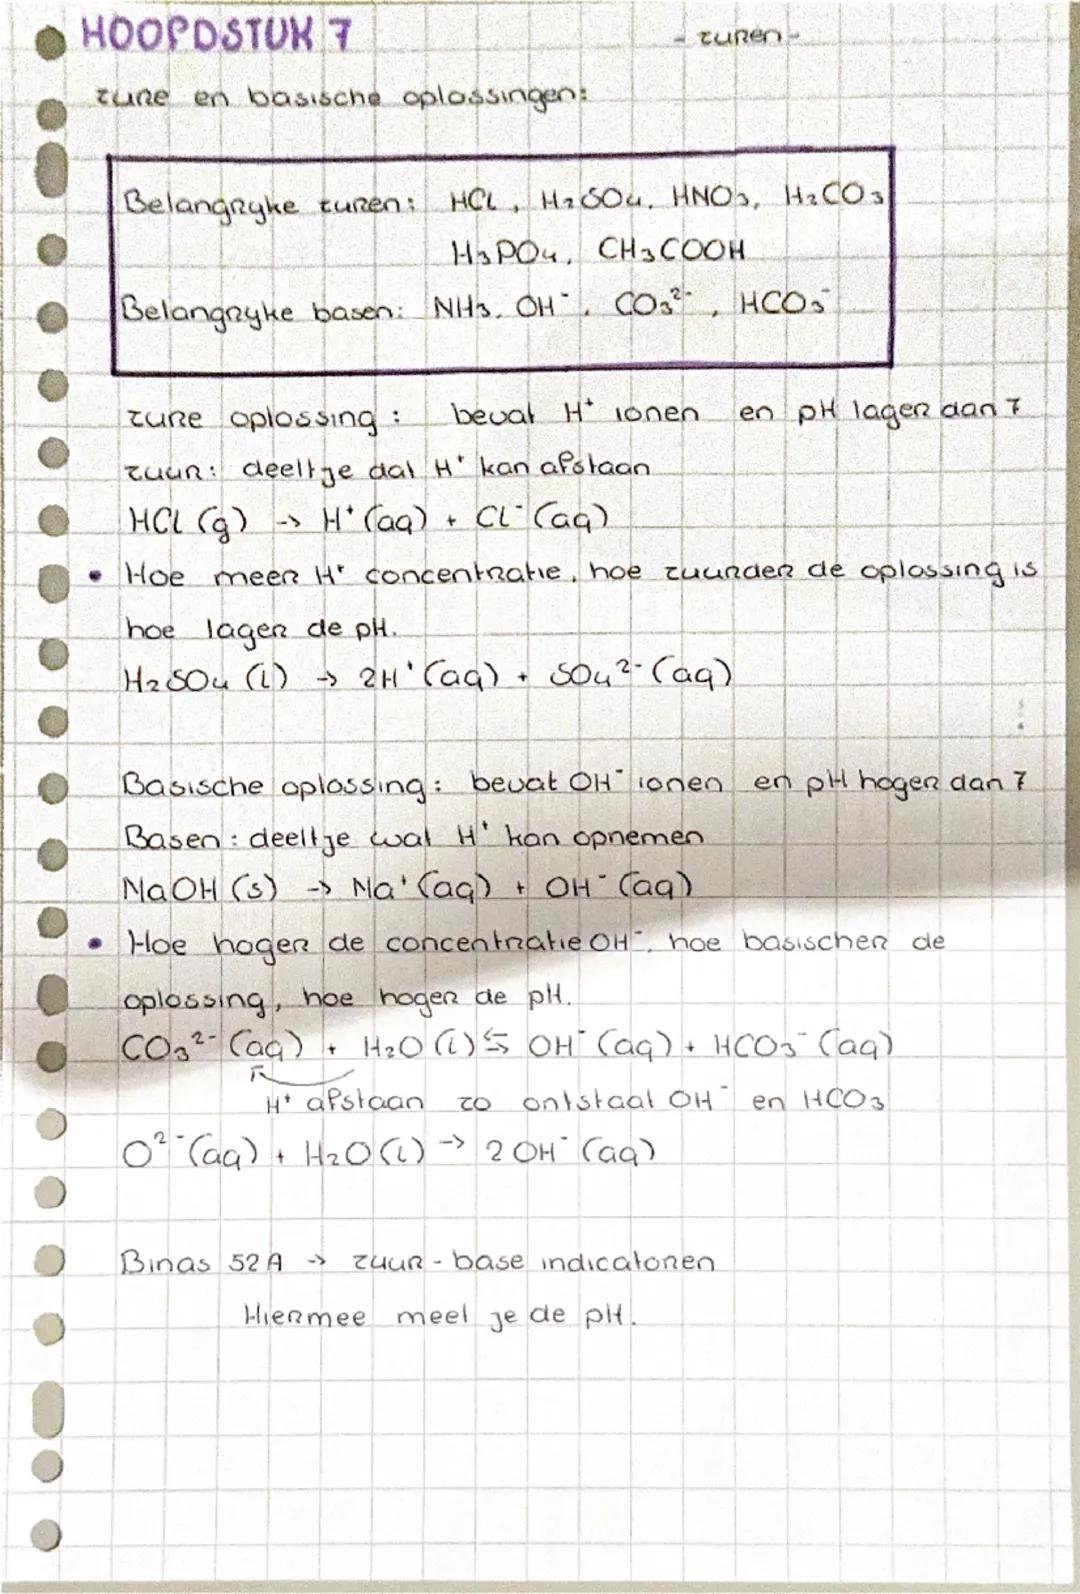 HOOFDSTUK 7
- zuren -
zure en basische oplossingen:
Belangryke zuren: HCl, H₂SO₄, HNO₃, H₂CO₃
H₃PO₄, CH₃COOH
Belangryke basen: NH₃, OH⁻, CO₃²⁻, HCO₃⁻
zure oplossing: bevat H⁺ ionen en pH lager dan 7
zuur: deeltje dat H⁺ kan afstaan
HCl (g) -> H⁺ (aq) + Cl⁻ (aq)
• Hoe meer H⁺ concentratie, hoe zuurder de oplossing is
hoe lager de pH.
H₂SO₄ (l) -> 2H⁺ (aq) + SO₄²⁻ (aq)
Basische oplossing: bevat OH⁻ ionen en pH hoger dan 7
Basen: deeltje wat H⁺ kan opnemen
NaOH (s) -> Na⁺ (aq) + OH⁻ (aq)
• Hoe hoger de concentratie OH⁻, hoe basischer de
oplossing, hoe hoger de pH.
CO₃²⁻ (aq) + H₂O (l) ⇆ OH⁻ (aq) + HCO₃⁻ (aq)
H⁺ afstaan zo ontstaat OH⁻ en HCO₃
O²⁻ (aq) + H₂O (l) -> 2 OH⁻ (aq)
Binas 52A -> zuur-base indicatoren
Hiermee meet je de pH.